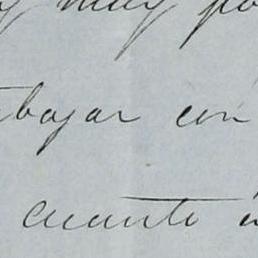 y muy po
abajar con
cuanto